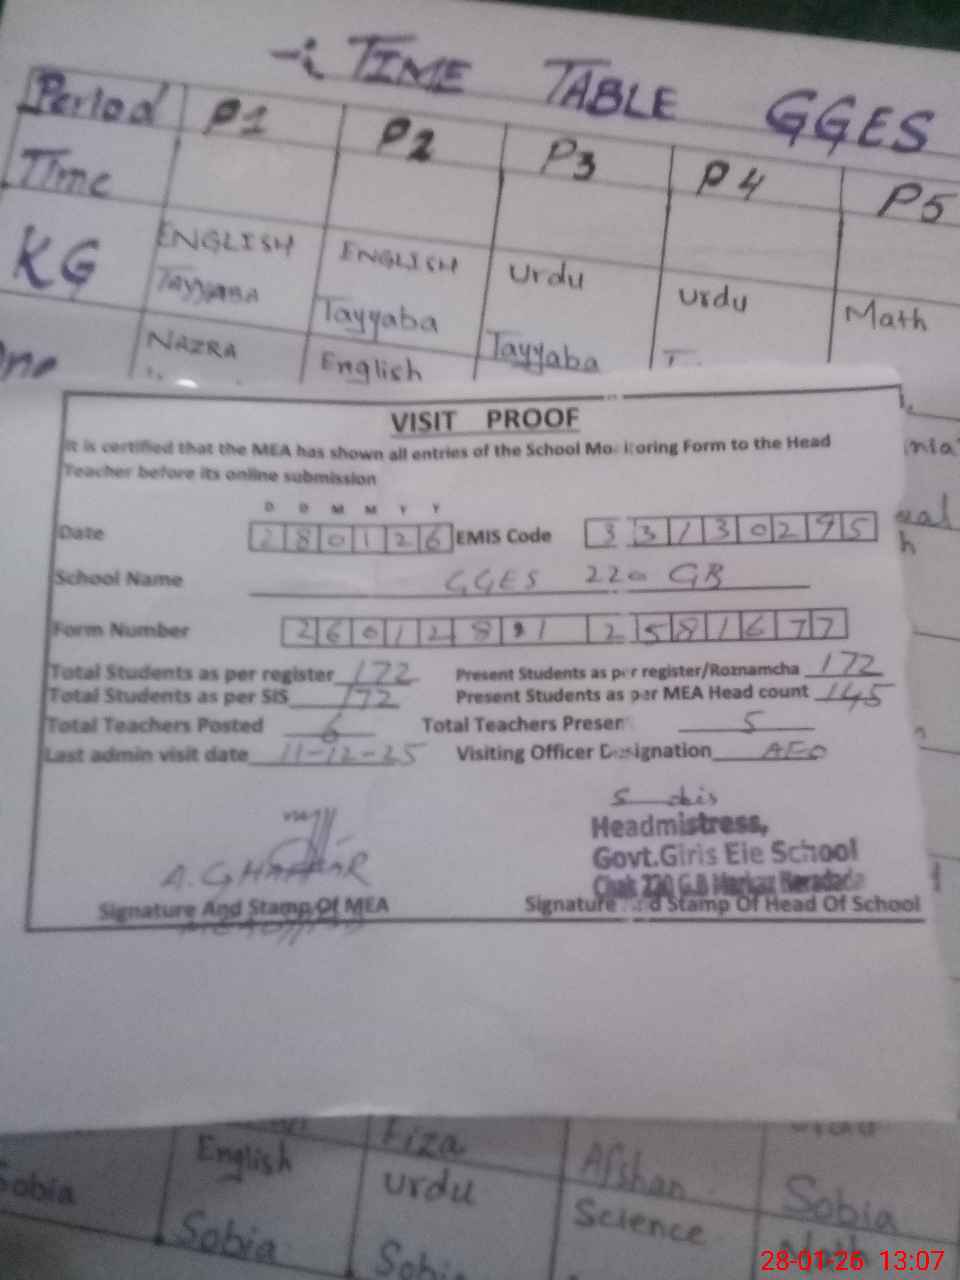 TIME TABLE GGES
Period P1 P2 P3 P4 P5
Time
KG ENGLISH ENGLISH Urdu Urdu Math
Tayyaba Tayyaba Tayyaba
One NAZRA English
VISIT PROOF
It is certified that the MEA has shown all entries of the School Monitoring Form to the Head
Teacher before its online submission
D D M M Y Y
Date 280126 EMIS Code 33130295
School Name GGES 220 GB
Form Number
Total Students as per register 172 Present Students as per register/Roznamcha 172
Total Students as per SIS 172 Present Students as per MEA Head count 145
Total Teachers Posted 6 Total Teachers Present 5
Last admin visit date 11-12-25 Visiting Officer Designation AEO
Headmistress,
A. GHAFFAR Govt.Girls Ele School
Chak 220 G.B Markaz
Signature And Stamp Of MEA Signature And Stamp Of Head Of School
Fiza
English Afshan
Sobia Urdu Sobia
Sobia Science Math
Sobia
28-01-26 13:07